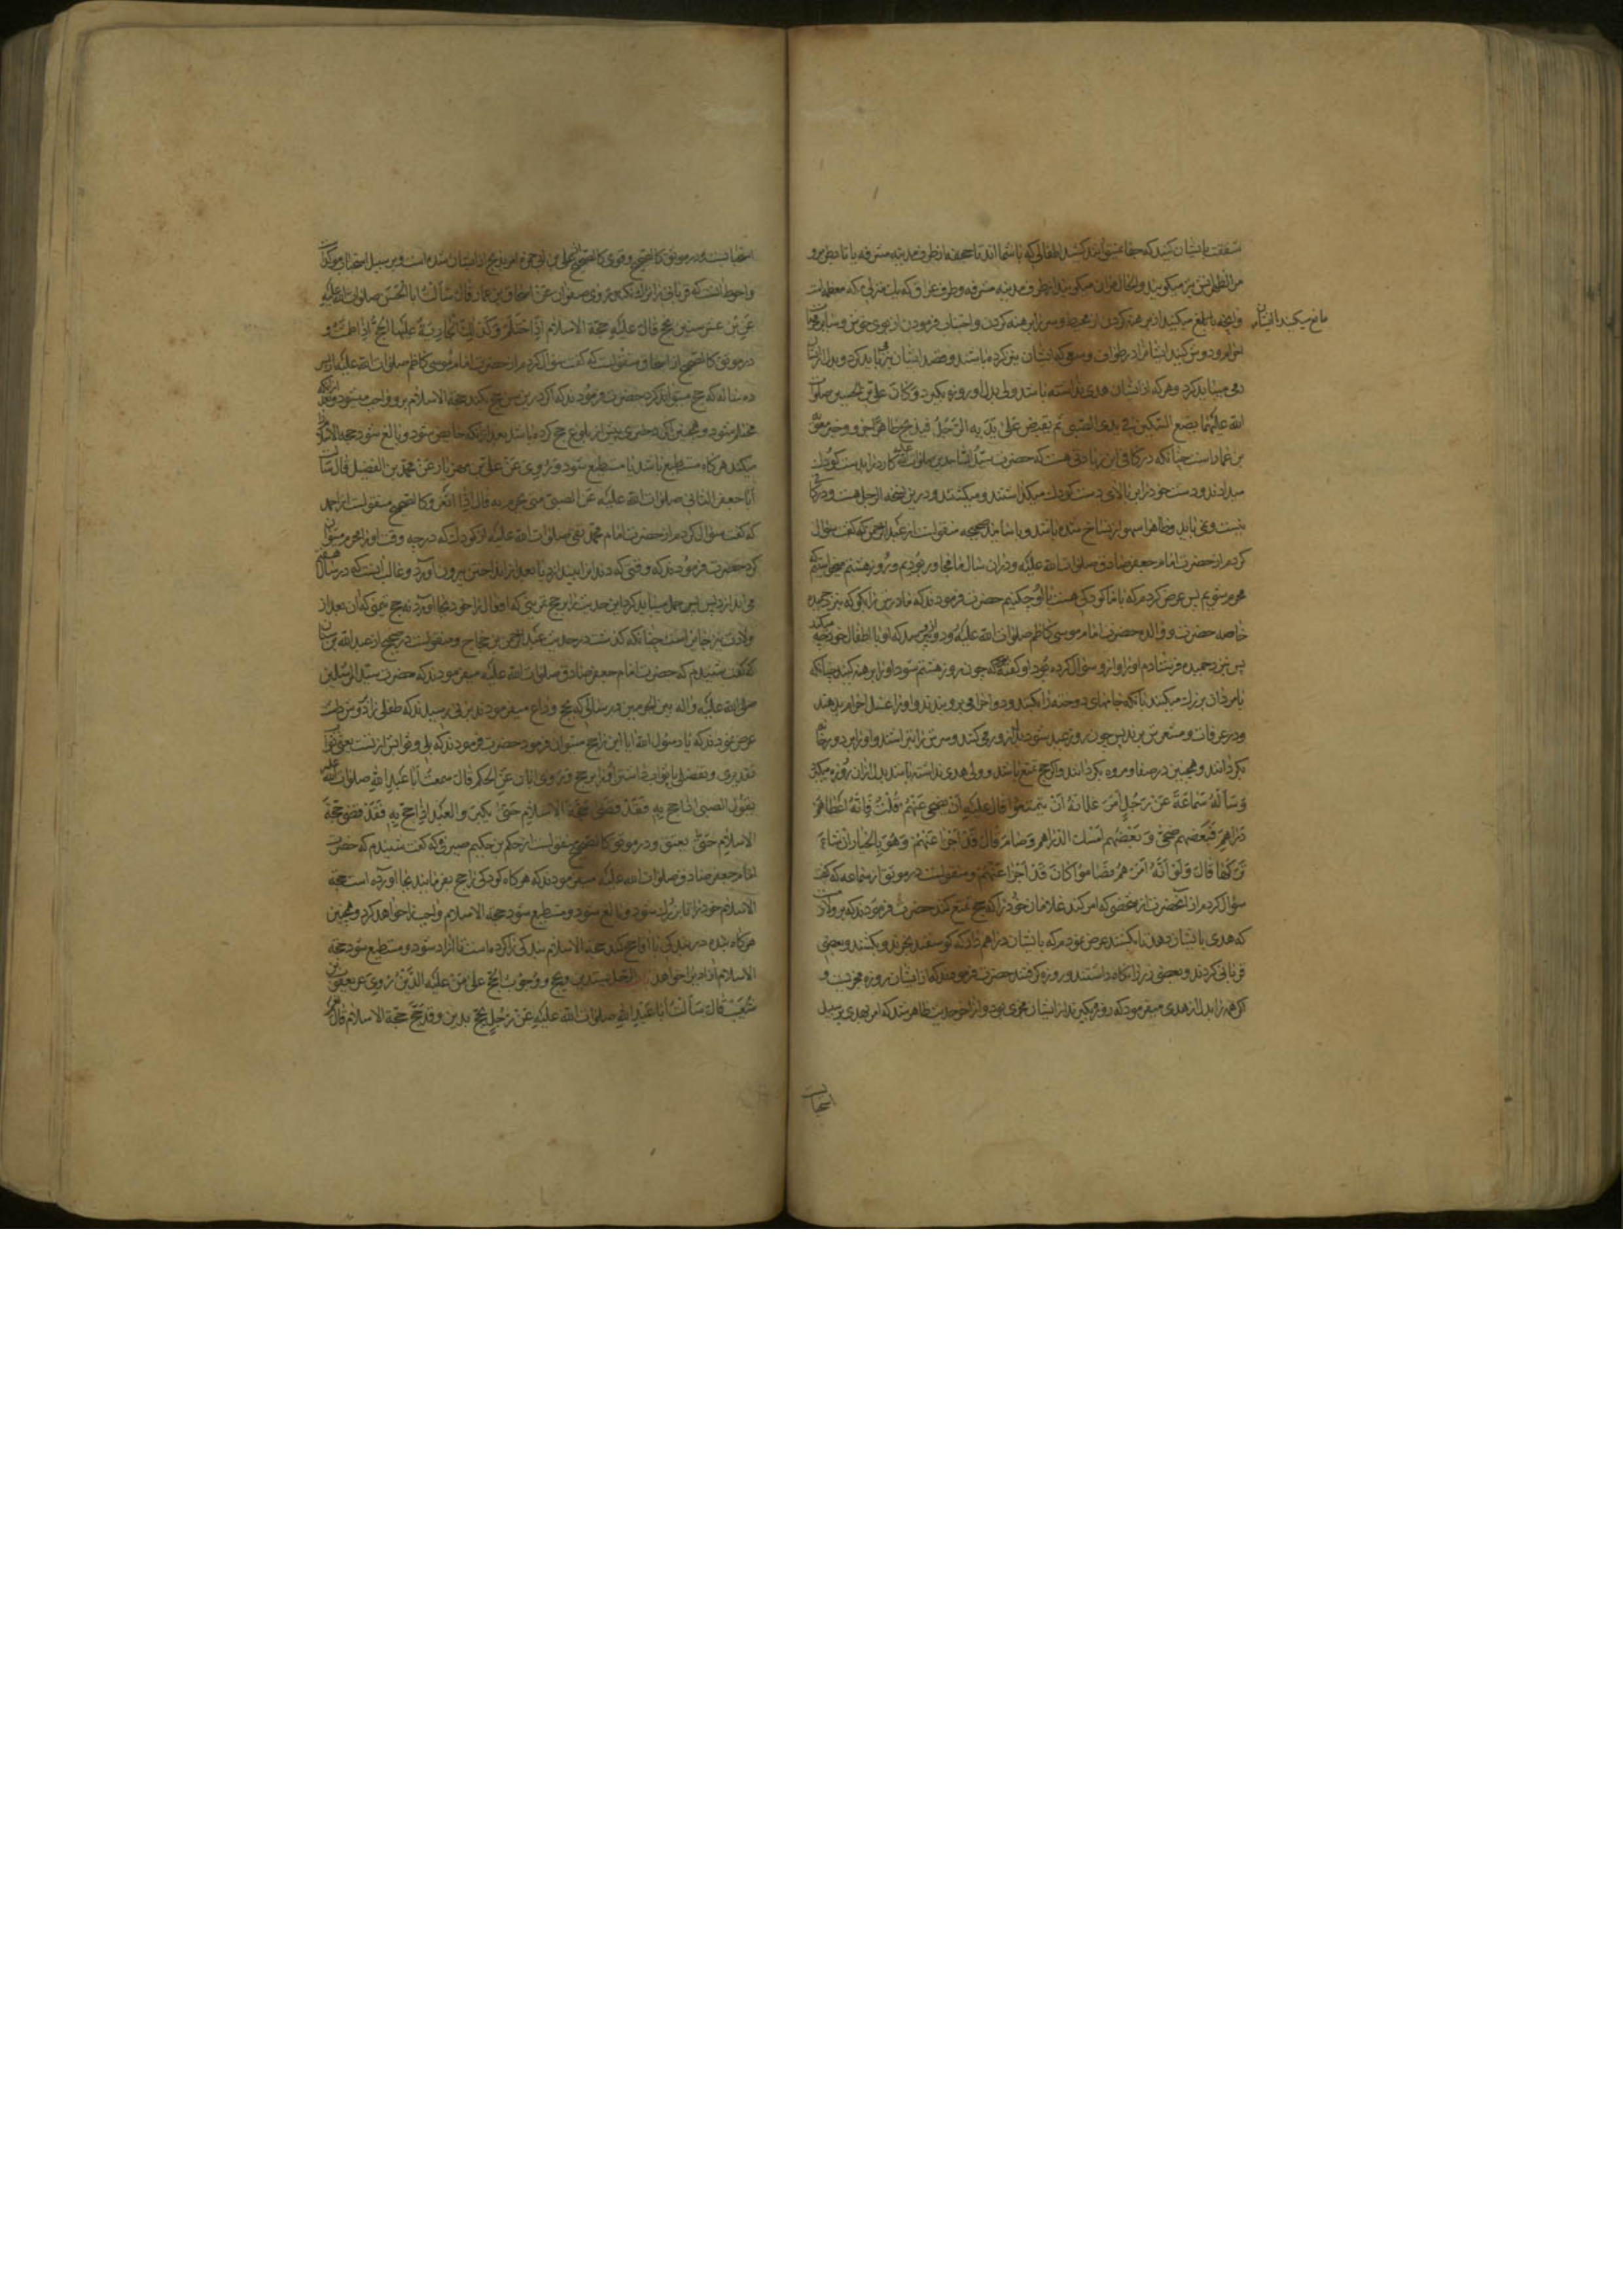 شفقت بایشان کنید که جفا نمیتوانند کشید اطفالی که با شما اند تا جحفه از طرف مدینه مشرفه یا تا بطن مرو
مر الظهران نیز میگویند و الحال مران میگویند از طرف مدینه مشرفه و طرف عراق که یک منزلی مکه معظمه است
مانع میکنید ایشان
و آنچه بالغ میکنند از برهنه کردن از مخیط و سر را برهنه کردن و اجتناب فرمودن از بوی خوش و سایر محرمات
احرام و دوش کنید ایشانرا در طواف و سعی که ایشان نیت کرده باشند و قصد ایشان نیز باید کرد و بدل از ایشان
رمی میباید کرد و هر که از ایشان هدی نداشته باشد ولی بدل او روزه بگیرد و کان علی بن الحسین صلوات
الله علیهما یضع السکین فی یدی الصبی ثم یقبض علی یدیه الرجل فیذبح ظاهرا جزو خبر معویة
بن عمار است چنانکه در کافی این زیادتی هست که حضرت سید الساجدین صلوات الله علیه کارد را بدست کودک
میدادند و دست خود را بر بالای دست کودک میگذاشتند و میکشتند و درین نسخه الرجل هست و در کافی
نیست و نمی باید و ظاهرا سهو از نساخ شده باشد و باسانید صحیحه منقولست از عبد الرحمن که گفت سؤال
کردم از حضرت امام جعفر صادق صلوات الله علیه و در آن سال ما مجاور بودیم و روز هشتم میخواستیم که
محرم شویم پس عرض کردم که با ما کودکی هست با او چکنیم حضرت فرمودند که مادرش را بگو که نزد حمیده
خاصه حضرت و والده حضرت امام موسی کاظم صلوات الله علیه رود و ازو بپرسد که او با اطفال خود چه میکند
پس نزد حمیده فرستادم او را و ازو سؤال کرده بود او گفته که چون روز هشتم شود او را برهنه کنید چنانکه
با مردان بزرگ میکنند بانکه جامهای دوخته را بکنند و دو احرامی برو بندند و او را غسل احرام بدهند
و در عرفات و مشعرش برند پس چون روز عید شود بدل ازو رمی کنند و سرش را بتراشند و او را بر دور خانه
بگردانند و همچنین در صفا و مروه بگردانند و اگر حج تمتع باشد و ولی هدی نداشته باشد بدل از آن روزه میگیرد
وَسَأَلَهُ سَمَاعَةَ عَنْ رَجُلٍ أَمَرَ غِلْمَانَهُ أَنْ يَتَمَتَّعُوا قال عليه أَنْ يُضَحِّيَ عَنْهُمْ قُلْتُ فَإِنَّهُ أَعْطَاهُمْ
دَرَاهِمَ فَبَعْضُهُمْ ضَحَّى وَ بَعْضُهُمْ أَمْسَكَ الدَّرَاهِمَ وَصَامَ قَالَ قَدْ أَجْزَأَ عَنْهُمْ وَهُوَ بِالْخِيَارِ إِنْ شَاءَ
تَرَكَهَا قَالَ وَلَوْ أَنَّهُ أَمَرَهُمْ فَصَامُوا كَانَ قَدْ أَجْزَأَ عَنْهُمْ و منقولست در موثق از سماعه که گفت
سؤال کردم از آنحضرت از شخصی که امر کند غلامان خود را که حج تمتع کنند حضرت فرمودند که بر ولازم است
که هدی بایشان دهد تا بکشند عرض نمودم که بایشان دراهم داد که گوسفند بخرند و بکشند و بعضی
قربانی کردند و بعضی زر را نگاه داشتند و روزه گرفتند حضرت فرمودند که از ایشان روزه مجزیست و
اگر همه را بدل از هدی میفرمود که روزه بگیرند از ایشان مجزی بود و از آخر حدیث ظاهر شد که امر بهدی بر سبیل
استحبابست
استحبابست و در موثق کالصحیح و قوی کالصحیح علی بن ابی حمزه امر بذبح از ایشان شده است و بر سبیل استحباب مؤکد است
و احوط آنست که قربانی را ترک نکند و رُوِیَ صفوان عن اسحاق بن عمار قال سألت ابا الحسن صلوات الله علیه
عَنِ ابْنِ عَشْرِ سِنِينَ يَحُجُّ قَالَ عليه حَجَّةُ الاسلام اِذَا احْتَلَمَ وَكَذَلِكَ الْجَارِيَةُ عَلَيْهَا الْحَجُّ اِذَا طَمِثَتْ و
در موثق کالصحیح از اسحاق منقولست که گفت سؤال کردم از حضرت امام موسی کاظم صلوات الله علیه از پسر
ده ساله که حج میتواند کرد حضرت فرمودند که اگر درین سن حج بکند حجة الاسلام برو واجب میشود وقتی که
محتلم شود و همچنین اگر دختری پیش از بلوغ حج کرده باشد بعد از آنکه حایض شود و بالغ شود حجة الاسلام
میکند هرگاه مستطیع باشد یا مستطیع شود و رُوِیَ عَنْ علی بن مهزیار عَنْ محمد بن الفضیل قال سألت
أبا جعفر الثانی صلوات الله علیه عن الصبی متی یحرم به قال اذا اثغر و کالصحیح منقولست از محمد
که گفت سؤال کردم از حضرت امام محمد تقی صلوات الله علیه از کودک که در چه وقت او را محرم میتوان
کرد حضرت فرمودند که وقتی که دندانرا بیندازد یا بعد از انداختن بیرون آورد و غالب آنست که در سال هفتم
می اندازد پس حمل میباید کرد این حدیث را بر حج تمرینی که افعال را خود بجا آورد نه حج تمتع که آن بعد از
ولادت نیز جایز است چنانکه گذشت در حدیث عبد الرحمن بن حجاج و منقولست در صحیح از عبد الله بن سنان
که گفت شنیدم که حضرت امام جعفر صادق صلوات الله علیه میفرمودند که حضرت سید المرسلین
صلی الله علیه و آله بین الحرمین در سالی که بحج وداع میفرمودند بزنی رسیدند که طفلی را در دوش داشت
عرض نمود که یا رسول الله آیا این را حج میتوان فرمود حضرت فرمودند که بلی و ثوابش از تست یعنی ثواب
تقدیری و تفضلی یا ثواب داشتن او را بر حج وَرَوی ابان عَنِ الحکم قال سَمِعْتُ أبا عَبْدِ اللّهِ صلوات الله علیه
یقول الصبی اذا حج به فَقَدْ قَضَی حجة الاسلام حَتَّی یکبر و العبد اذا حج به فَقَدْ قضی حجة
الاسلام حَتَّی یعتق و در موثق کالصحیح منقولست از حکم بن حکیم صیرفی که گفت شنیدم که حضرت
امام جعفر صادق صلوات الله علیه میفرمودند که هرگاه کودکی را حج بفرمایند بجا آورده است حجة
الاسلام خود را تا بزرگ شود و بالغ شود و مستطیع شود حجة الاسلام واجب را خواهد کرد و همچنین
هرگاه بنده در بندگی با آقا حج کند حجة الاسلام بندگی را کرده است تا آزاد شود و مستطیع شود حجة
الاسلام آزاد برا خواهد الرجل یستدین و یحج و وجوب الحج علی من علیه الدین رُوِیَ عن یعقوب بن
شُعَیْب قال سألت ابا عَبْدِ اللّهِ صلوات الله علیه عَنْ رَجُلٍ یَحُجُّ بدین وقد حَجَّ حجة الاسلام قال